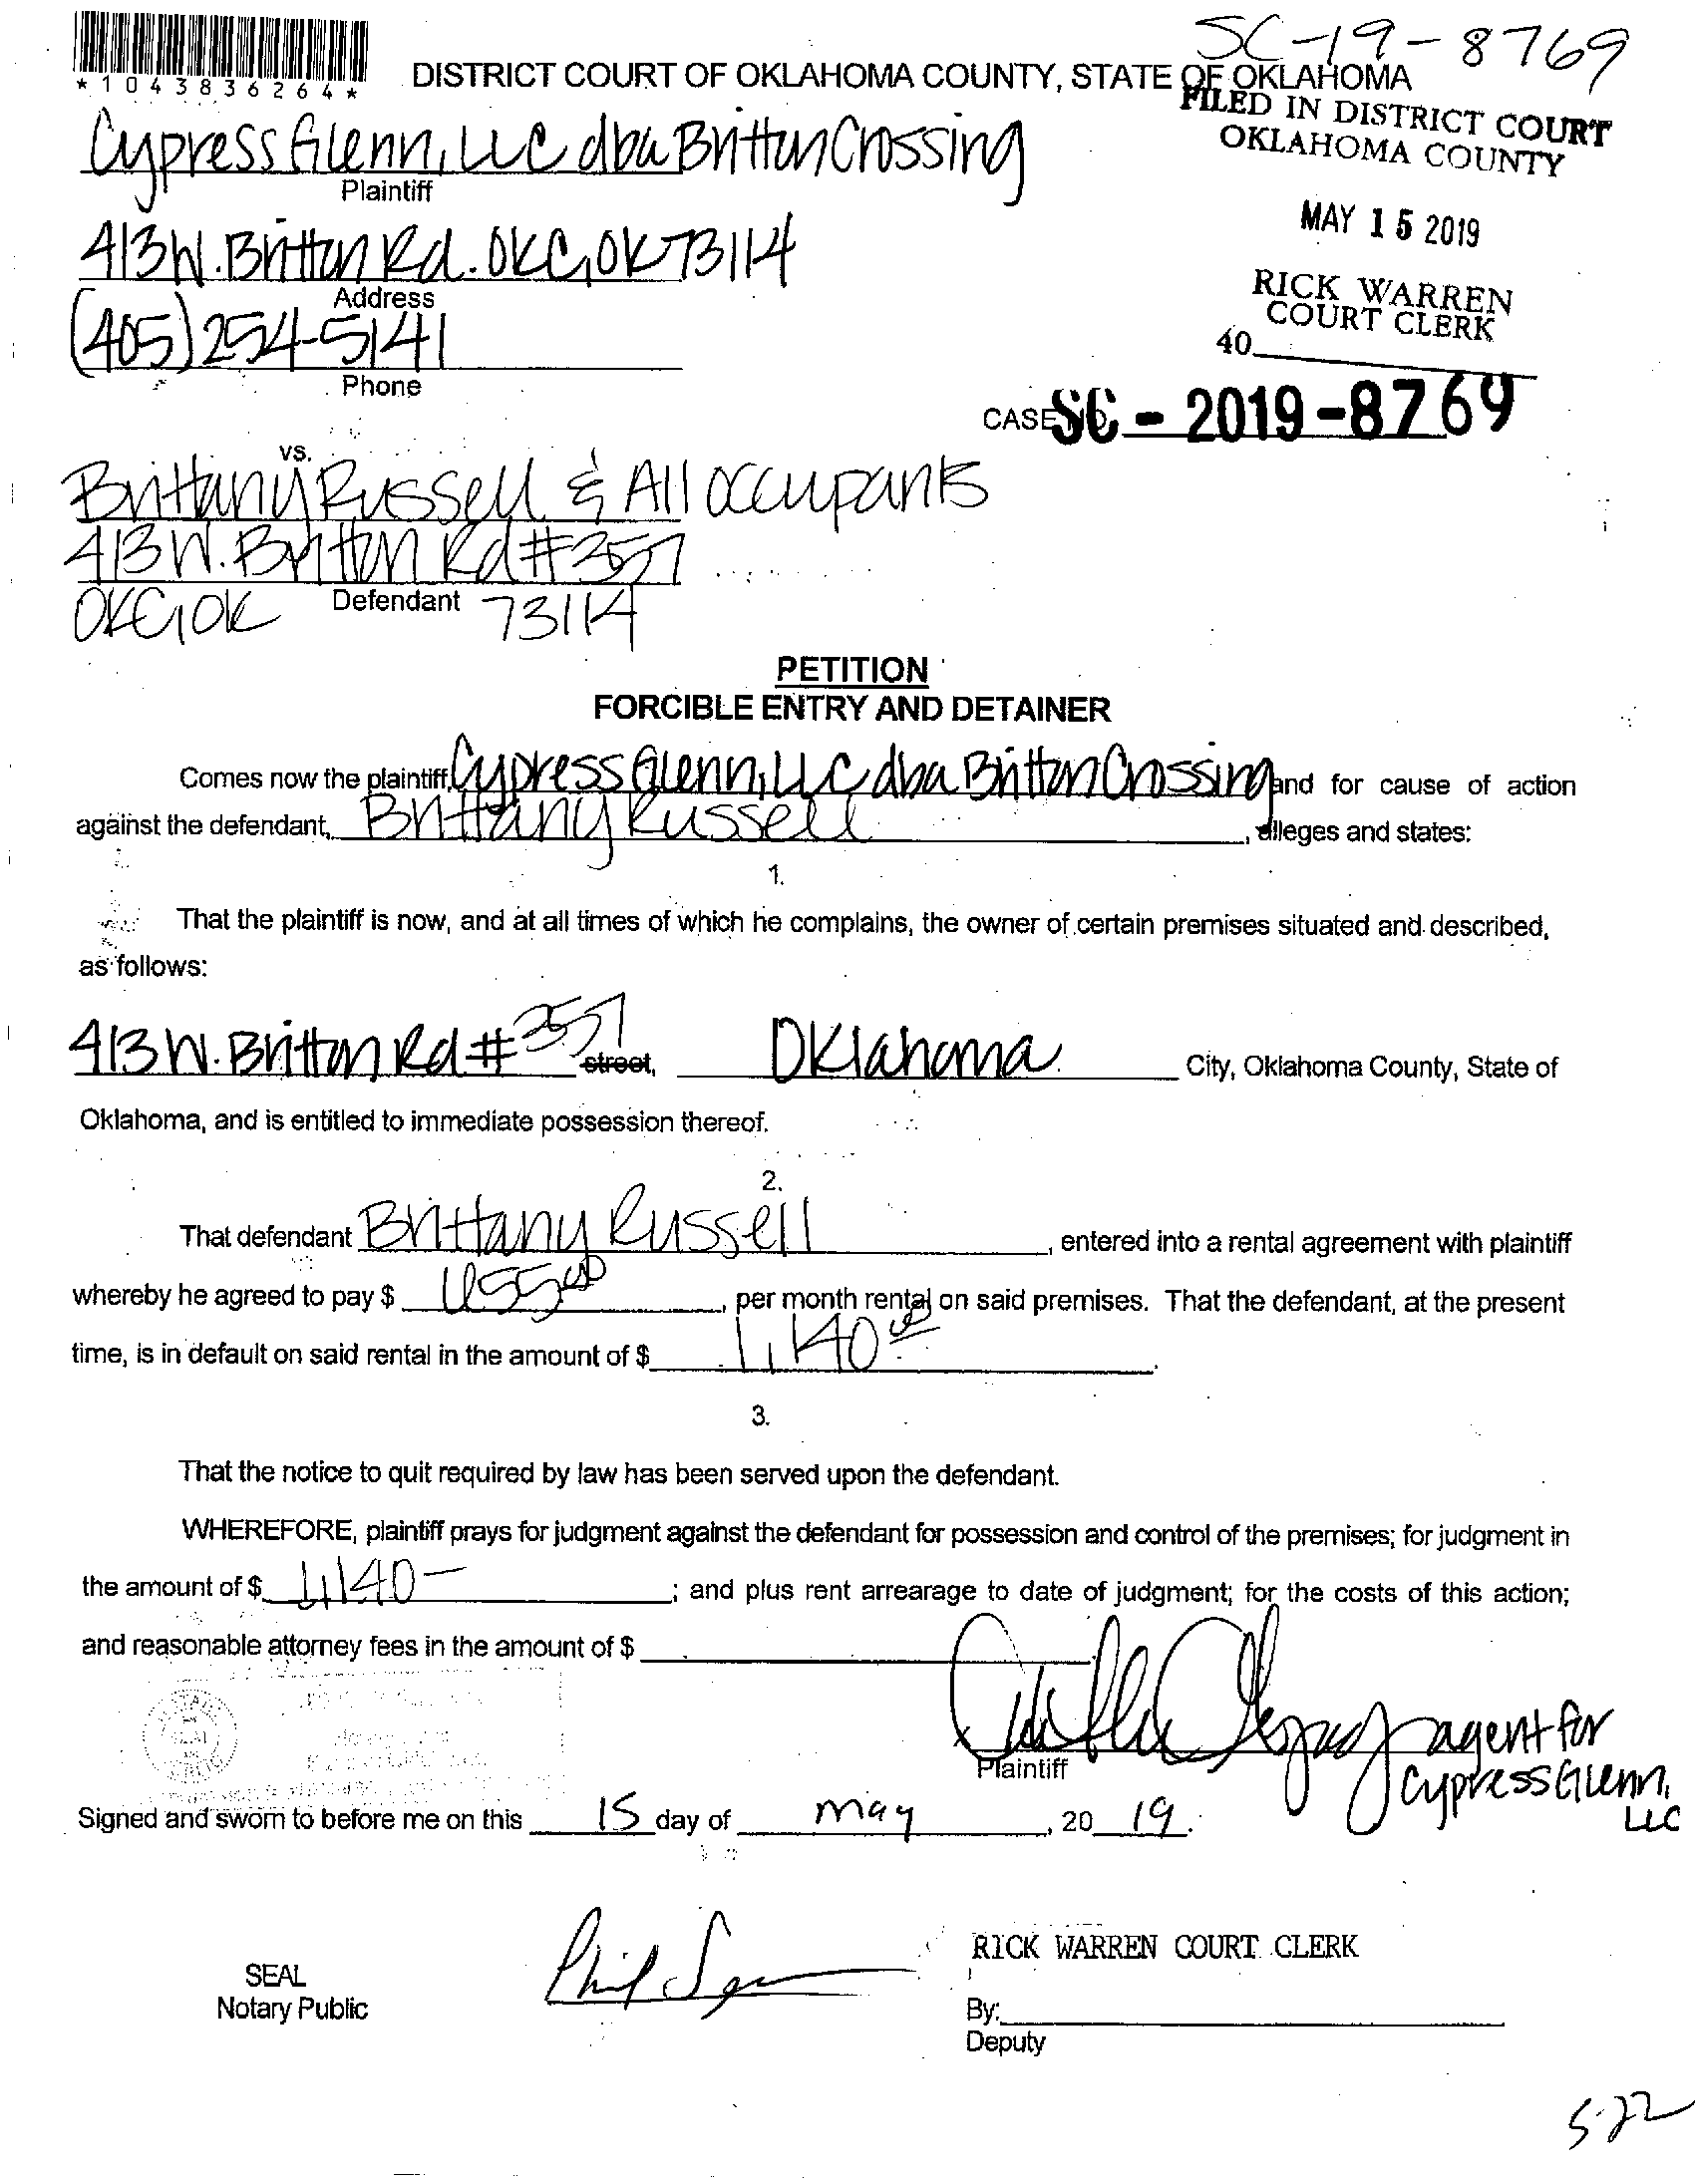 SC-19-8769
*1043836264*
DISTRICT COURT OF OKLAHOMA COUNTY, STATE OF OKLAHOMA
FILED IN DISTRICT COURT
OKLAHOMA COUNTY
Cypress Glenn, LLC dba Britton Crossing
Plaintiff
MAY 15 2019
413 W. Britton Rd. OKC, OK 73114
Address
RICK WARREN
COURT CLERK
40
(405) 254-5141
Phone
CASE NO. SC - 2019-8769
vs.
Brittany Russell & All occupants
413 W. Britton Rd #357
OKC, OK Defendant 73114
PETITION
FORCIBLE ENTRY AND DETAINER
Comes now the plaintiff, Cypress Glenn, LLC dba Britton Crossing and for cause of action
against the defendant, Brittany Russell, alleges and states:
1.
That the plaintiff is now, and at all times of which he complains, the owner of certain premises situated and described,
as follows:
413 W. Britton Rd #357 street, Oklahoma City, Oklahoma County, State of
Oklahoma, and is entitled to immediate possession thereof.
2.
That defendant Brittany Russell, entered into a rental agreement with plaintiff
whereby he agreed to pay $ 655 00, per month rental on said premises. That the defendant, at the present
time, is in default on said rental in the amount of $ 1,140 00.
3.
That the notice to quit required by law has been served upon the defendant.
WHEREFORE, plaintiff prays for judgment against the defendant for possession and control of the premises; for judgment in
the amount of $ 1,140-; and plus rent arrearage to date of judgment; for the costs of this action;
and reasonable attorney fees in the amount of $
agent for
Plaintiff
Cypress Glenn,
LLC
Signed and sworn to before me on this 15 day of may, 20 19.
RICK WARREN COURT CLERK
SEAL
Notary Public
By:
Deputy
5-22